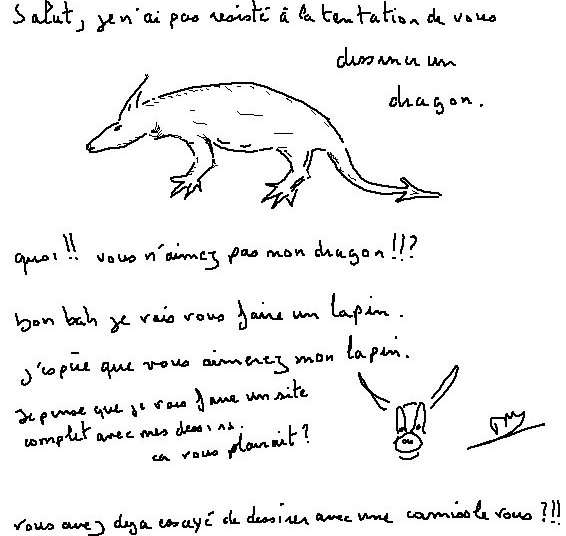 Salut, je n'ai pas resisté à la tentation de vous
dessiner un
dragon.
quoi!! vous n'aimez pas mon dragon!!?
bon bah je vais vous faire un lapin.
j'espère que vous aimerez mon lapin.
je pense que je vais faire un site
complet avec mes dessins.
ca vous plairait?
vous avez deja essayé de dessiner avec une camisole vous?!!